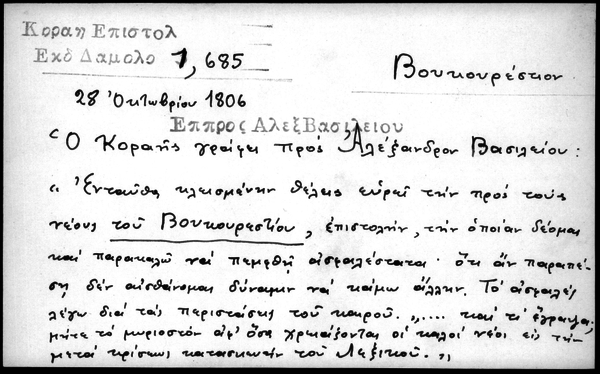 Κοραη Επιστολ
Εκδ Δαμολο 1, 685
Βουκουρέστιον
28 Ὀκτωβρίου 1806
Επ προς Αλεξ Βασιλειου
Ὁ Κοραῆς γράφει πρὸς Ἀλέξανδρον Βασιλείου:
« Ἐνταῦθα κλεισμένην θέλεις εὑρεῖ τὴν πρὸς τοὺς
νέους τοῦ Βουκουρεστίου, ἐπιστολήν, τὴν ὁποίαν δέομαι
καὶ παρακαλῶ νὰ πεμφθῇ ἀσφαλέστατα· ὅτι ἂν παραπέ-
σῃ δὲν αἰσθάνομαι δύναμιν νὰ κάμω ἄλλην. Τὸ ἀσφαλὲς
λέγω διὰ τὰς περιστάσεις τοῦ καιροῦ. „.... καὶ τί ἔγραψα;
μήτε τὸ μυριοστὸν ἀφ' ὅσα χρειάζονται οἱ καλοὶ νέοι εἰς τὴν
μετὰ κρίσεως κατασκευὴν τοῦ Λεξικοῦ. „